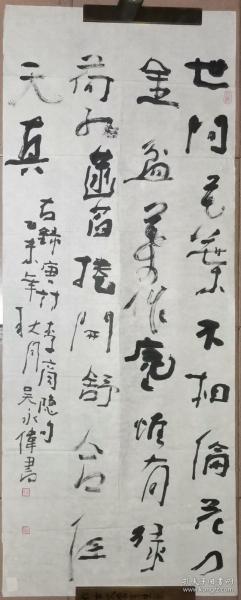 世間花葉不相倫花入
金盆葉作塵惟有綠
荷紅菡萏捲開舒合任
天真
右錄唐李商隱句
乙未年月吴永偉書